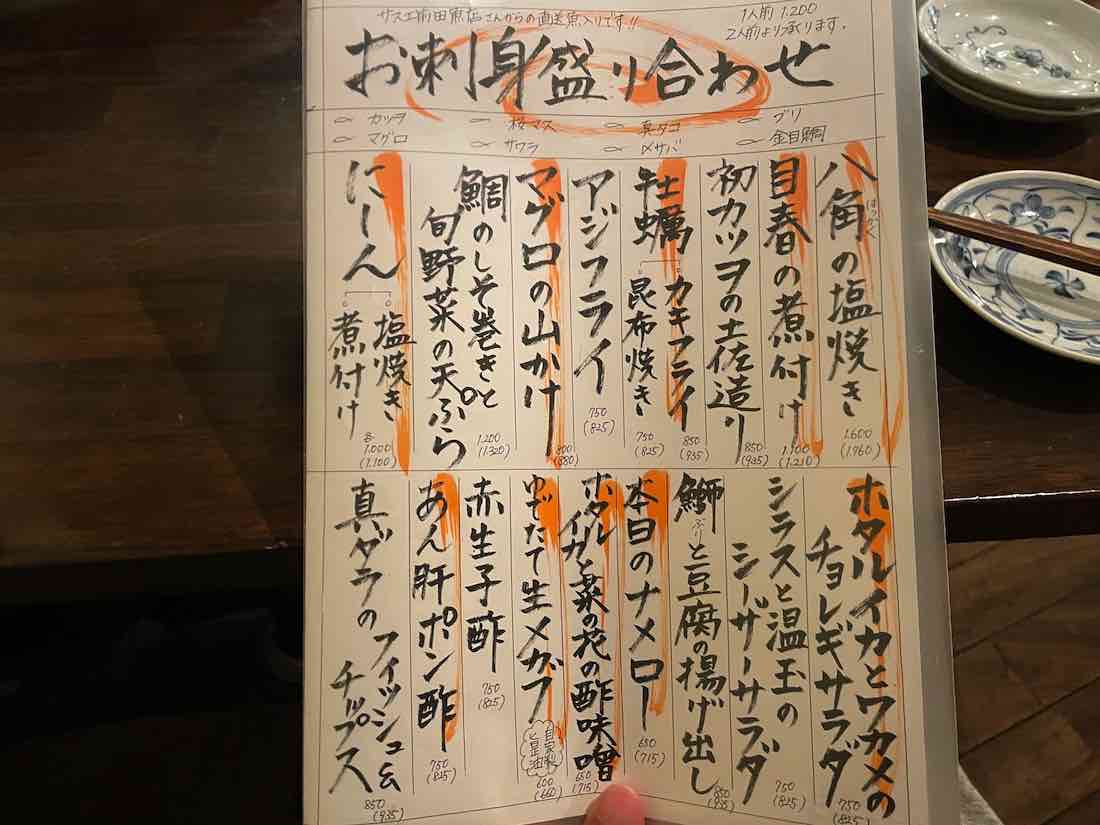 サスエ前田魚店さんからの直送魚入りです!!
1人前 1.200
2人前より承ります.
お刺身盛り合わせ
カツヲ
桜マス
真ダコ
ブリ
マグロ
サワラ
〆サバ
金目鯛
八角の塩焼き
はっかく
1.600
(1.960)
目春の煮付け
1.100
(1.210)
初カツヲの土佐造り
850
(935)
牡蠣
カキフライ
850
(935)
昆布焼き
750
(825)
アジフライ
750
(825)
マグロの山かけ
800
(880)
鯛のしそ巻きと
旬野菜の天ぷら
1.200
(1.320)
にーん
塩焼き
煮付け
各
1.000
(1.100)
ホタルイカとワカメの
チョレギサラダ
750
(825)
シラスと温玉の
シーザーサラダ
750
(825)
鰤と豆腐の揚げ出し
ぶり
850
(935)
本日のナメロー
650
(715)
ホタルイカと菜の花の酢味噌
650
(715)
ゆでたて生メカブ
自家製
と醤油
600
(660)
赤生子酢
750
(825)
あん肝ポン酢
750
(825)
真ダラの
フィッシュ&
チップス
850
(935)